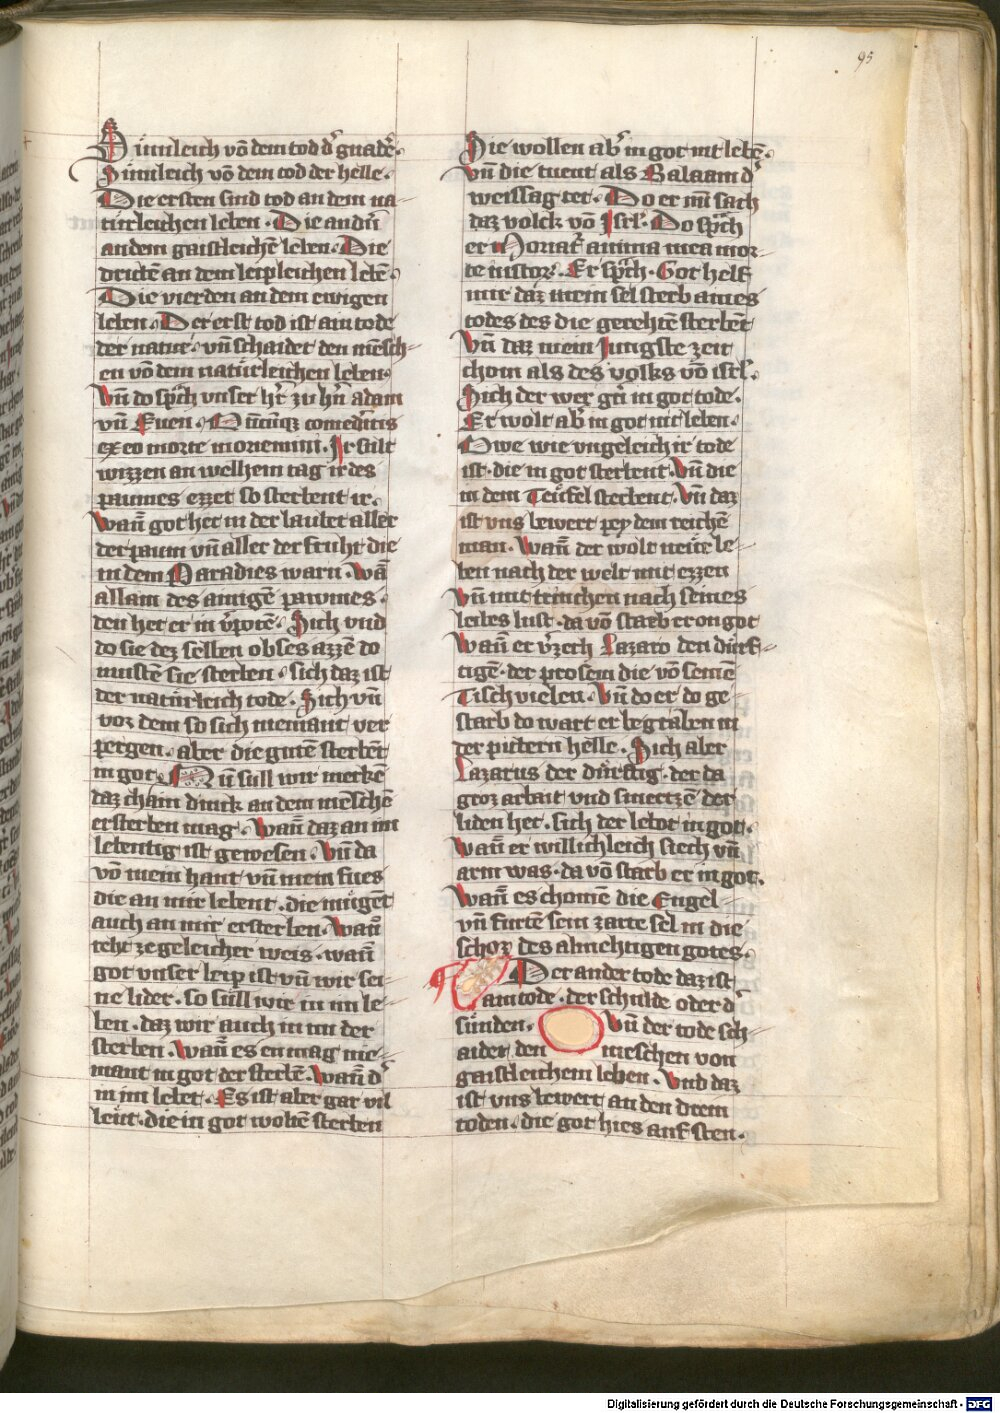 95
Sümleich võ dem tod d' gnadẽ.
Sümleich võ dem tod der helle.
Die ersten sind tod an dem na
türleichen leben. Die andñ
an dem gaistleichẽ leben. Die
dritẽ an dem leipleichen lebẽ.
Die vierden an dem ewigen
leben. Der erst tod ist ain tode
der natur. vñ schaidet den mẽsch-
en võ dem natürleichen leben.
Vñ do sp̃ch vnser h'r zu h'n adam
vñ Euen.
ex eo morte moriemini. Ir sült
wizzen an welhem tag ir des
paumes ezzet so sterbent ir.
Wañ got het in der laubet aller
der paum vñ aller der fruht die
in dem Paradies warn. Wã
allain des ainigẽ pawmes.
den het er in v'potẽ. Sich vnd
do sie dez selben obses azzẽ do
mustẽ sie sterben. sich daz ist
der natürleich tode. Sich vñ
vor dem so sich niemant ver
pergen. aber die gutẽ sterbẽt
in got. Nu süll wir merkẽ
daz chain dinck an dem mẽschẽ
ersterben mag. Wañ daz an im
lebentig ist gewesen. Vñ da
võ mein hant vñ mein fues
die an mir lebent. die mügẽt
auch an mir ersterben. Wañ
reht ze geleicher weis. wañ
got vnser leip ist vñ wir sei-
ne lider. so süll wir in im le-
ben. daz wir auch in im der
sterben. Wañ es en mag nie-
mant in got der sterbẽ. Wañ d'
in im lebet. Es ist aber gar vil
leüt. die in got woltẽ sterben
Sie wollen ab' in got nit lebẽ.
Vñ die tuent als Balaam d'
weissag tet. Do er nũ sach
daz volck võ Isrl. Do sp̃ch
er Moriat' anima mea mor-
te iustor'. Er sp̃ch. Got helf
mir daz mein sel sterb aines
todes des die gerehtẽ sterbẽt
Vñ daz mein Jungste zeit
chom als des volks võ isrl'.
Sich der wer g'n in got tode.
Er wolt ab' in got nit leben.
Owe wie vngeleich ir tode
ist. die in got sterbent. Vñ die
in dem Teüfel sterbent. Vñ daz
ist vns bewert pey dem reichẽ
man. Wañ der wolt neür le-
ben nach der welt mit ezzen
Vñ mit trinchen nach seines
leibes lust. da võ starb er on got
Wañ er v'zech Lazaro den dürf-
tigẽ. der prosem die võ seinẽ
Tisch vielen. Vñ do er do ge
starb do wart er begraben in
der pittern helle. Sich aber
Lazarus der dürftig. der da
groz arbait vnd smertzẽ der
liden het. sich der lebot in got.
Wañ er willichleich siech vñ
arm was. da võ starb er in got.
Wañ es chomẽ die Engel
vñ fürtẽ sein zarte sel in die
schoz des almehtigen gotes.
Der ander tode daz ist
ain tode. der schulde oder d'
sünden. Vñ der tode sch-
aidet den menschen von
gaistleichem leben. Vnd daz
ist vns bewert an den drein
toden. die got hies auf sten.
Digitalisierung gefördert durch die Deutsche Forschungsgemeinschaft - DFG